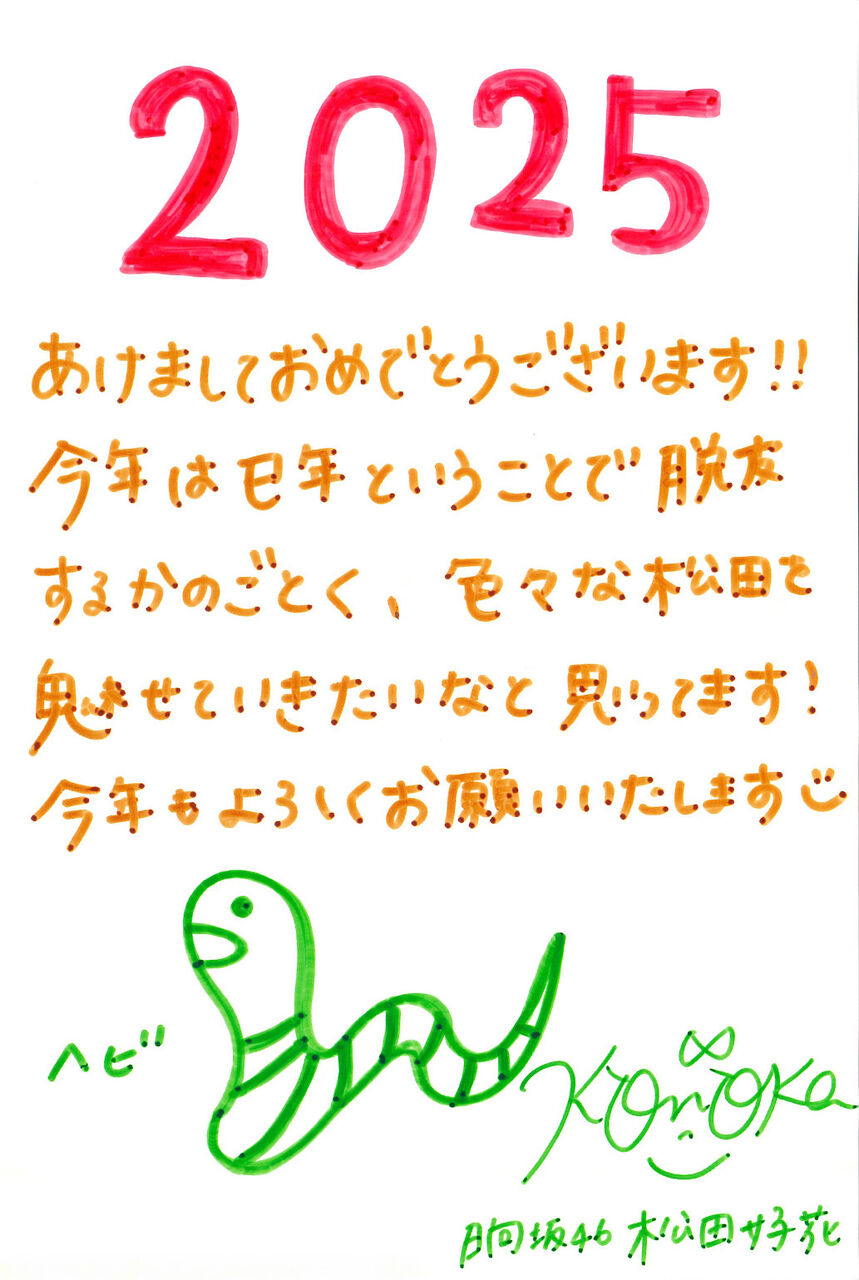 2025
あけましておめでとうございます!!
今年は巳年ということで脱皮
するかのごとく、色々な松田を
魅せていきたいなと思ってます!
今年もよろしくお願いいたします
ヘビ
Konoka
日向坂46 松田好花